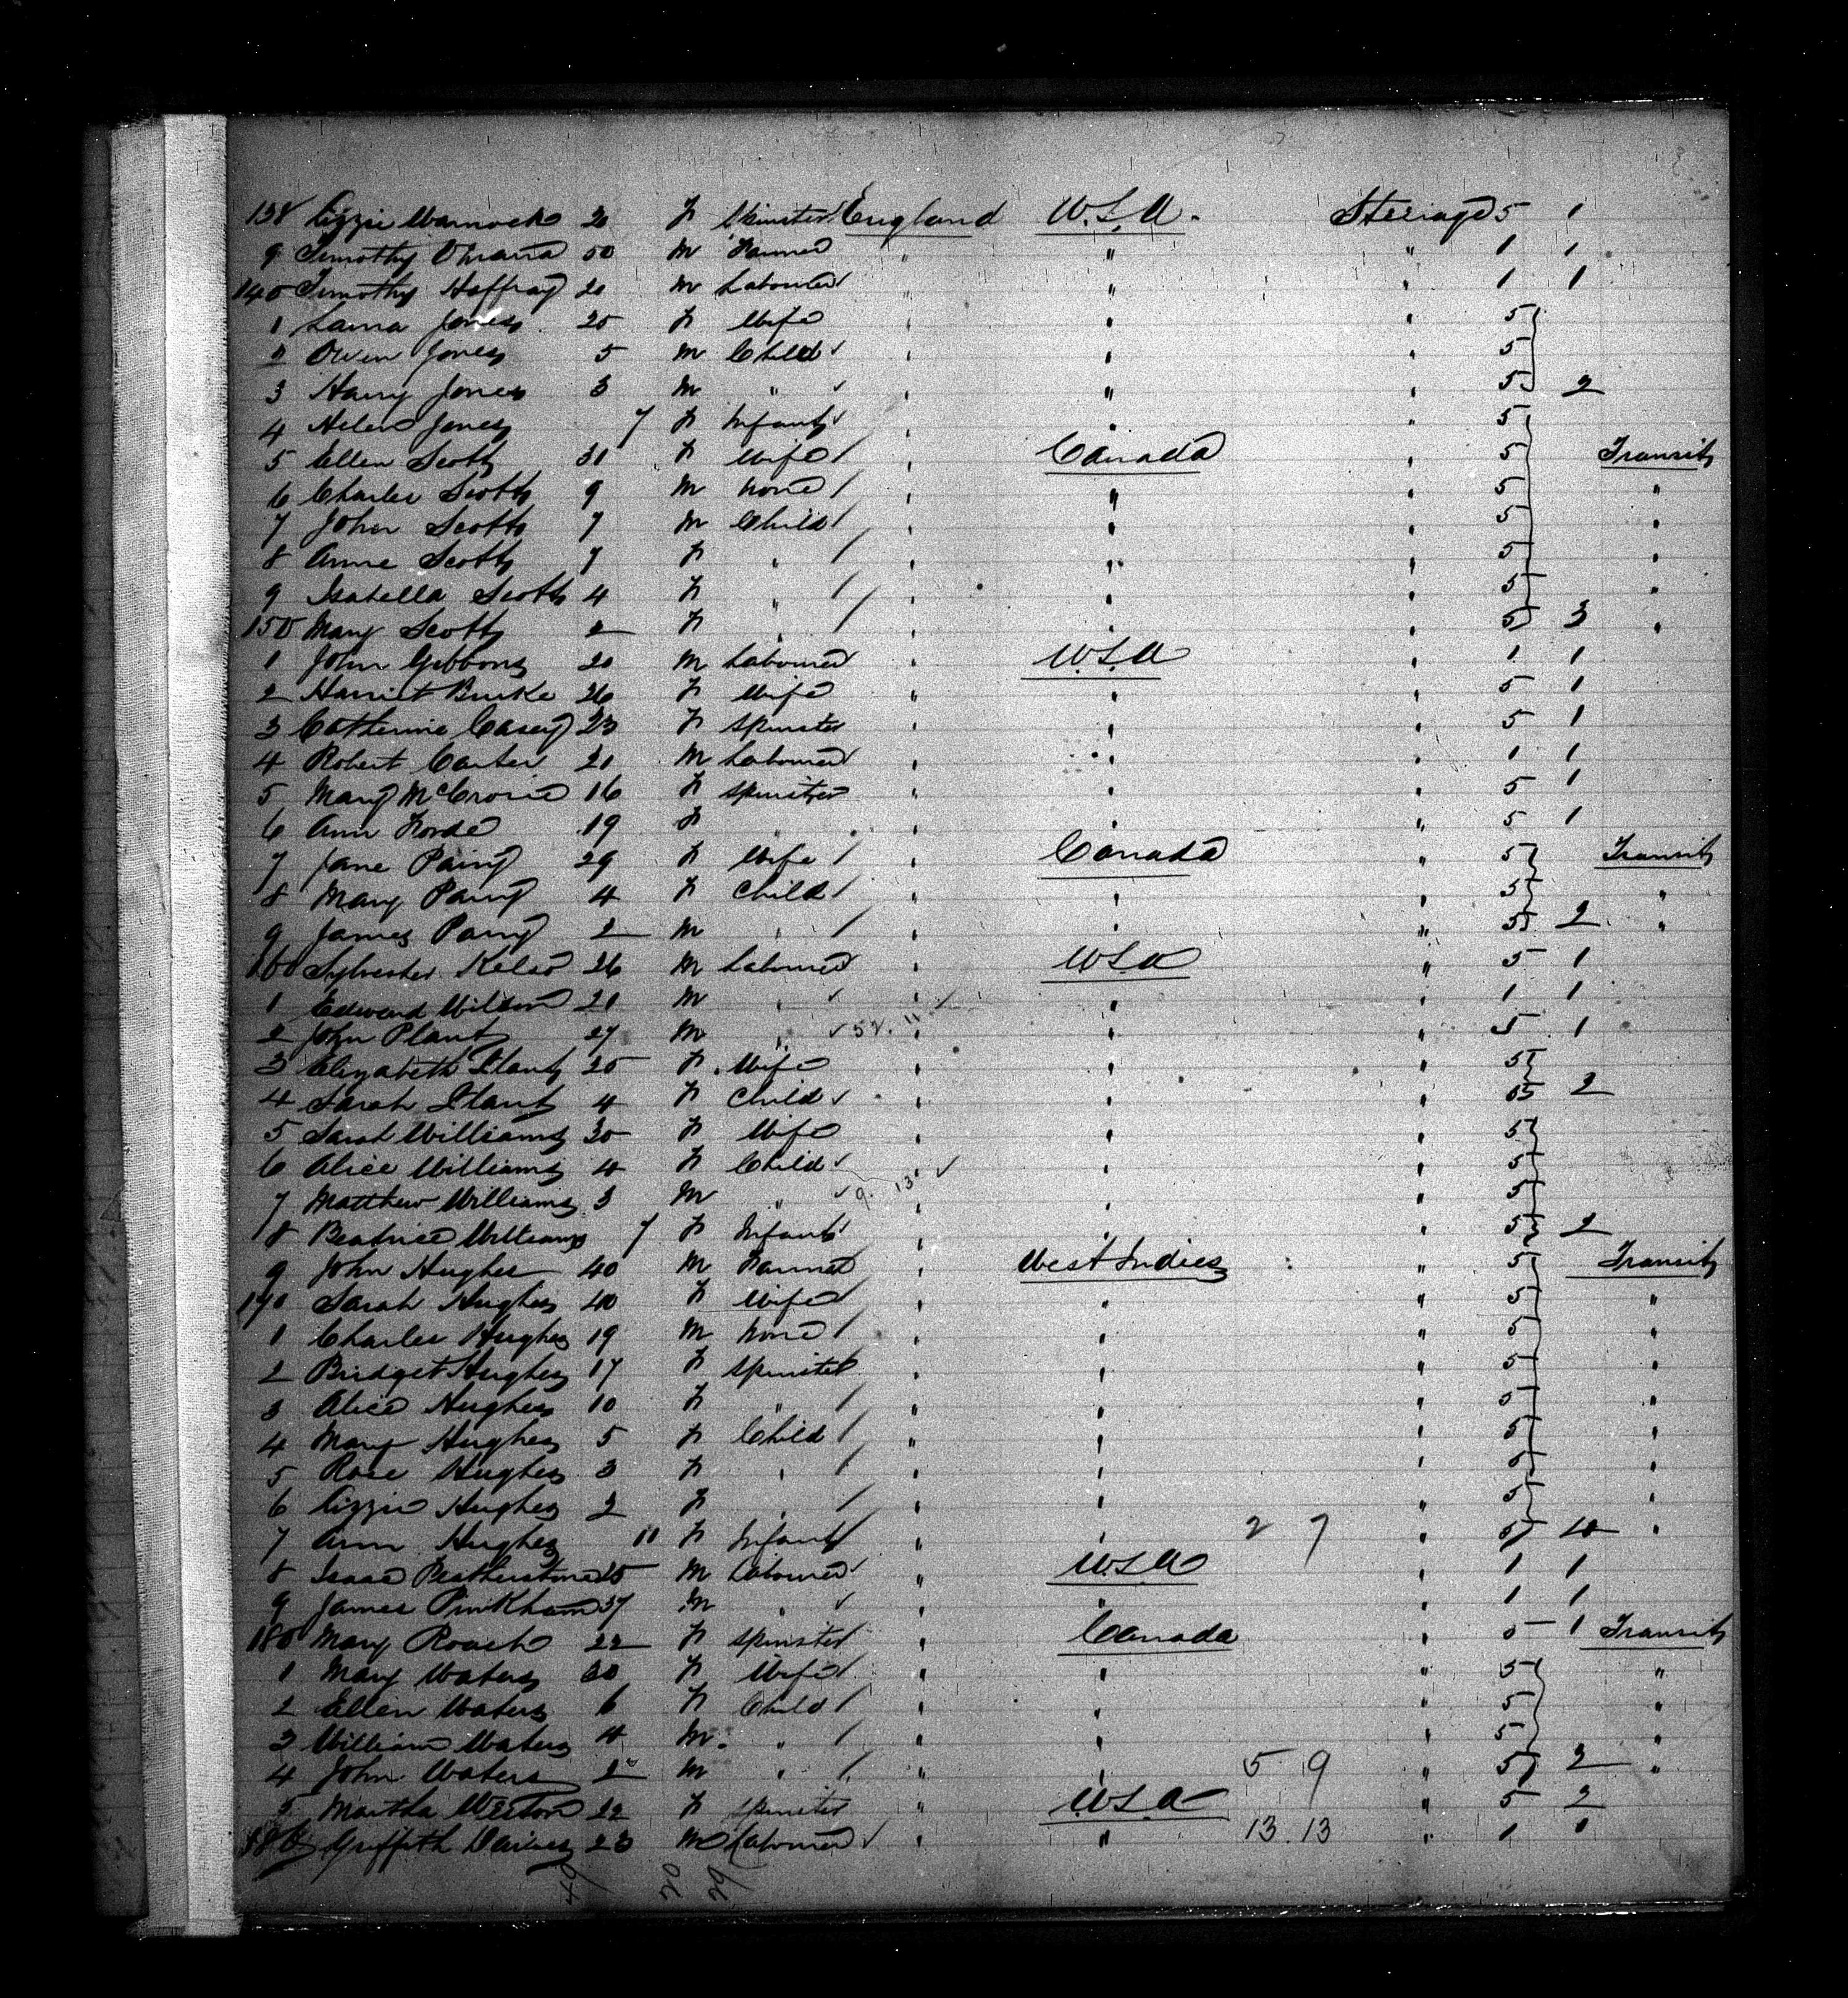 138 Lizzie Warnock 20 F Spinster England U.S.A. Steerage 5 1
9 Timothy 50 M Farmer " " " 1 1
140 Timothy 20 M Labourer " " " 1 1
1 Laura Jones 25 F Wife " " " 5
2 Owen Jones 5 M Child " " " 5
3 Harry Jones 3 M " " " " 5 2
4 Helen Jones 7 F Infant " " " 5
5 Ellen Scott 31 F Wife " Canada " 5 Transit
6 Charles Scott 9 M None " " " 5 "
7 John Scott 7 M Child " " " 5 "
8 Anne Scott 7 F " " " " 5 "
9 Isabella Scott 4 F " " " " 5 "
150 Mary Scott 2 F " " " " 5 3 "
1 John Gibbons 20 M Labourer " U.S.A " 1 1
2 Harriet Burke 26 F Wife " " " 5 1
3 Catherine Casey 23 F Spinster " " " 5 1
4 Robert Carter 21 M Labourer " " " 1 1
5 Mary McCrorie 16 F Spinster " " " 5 1
6 Ann Forde 19 F " " " " 5 1
7 Jane 29 F Wife " Canada " 5 Transit
8 Mary 4 F Child " " " 5 "
9 James 2 M " " " " 5 2 "
160 Sylvester Kelso 26 M Labourer " U.S.A " 5 1
1 Edward Wilson 21 M " " " " 1 1
2 John Plant 27 M " " " " 5 1
3 Elizabeth Plant 25 F Wife " " " 5
4 Sarah Plant 4 F Child " " " 5 2
5 Sarah Williams 30 F Wife " " " 5
6 Alice Williams 4 F Child " " " 5
7 Matthew Williams 3 M " 9. 13 " " " 5
8 Beatrice Williams 7 F Infant " " " 5 2
9 John Hughes 40 M Farmer " West Indies " 5 Transit
170 Sarah Hughes 40 F Wife " " " 5 "
1 Charles Hughes 19 M None " " " 5 "
2 Bridget Hughes 17 F Spinster " " " 5 "
3 Alice Hughes 10 F " " " " 5 "
4 Mary Hughes 5 F Child " " " 5 "
5 Rose Hughes 3 F " " " " 5 "
6 Lizzie Hughes 2 F " " " " 5 "
7 Ann Hughes 11 F Infant " " 2 7 " 5 "
8 Isaac 25 M Labourer " U.S.A " 1 1
9 James Pinkham 37 M " " " 1 1
180 Mary Roach 22 F Spinster Canada 5 1 Transit
1 Mary Waters 30 F Wife " " " 5 "
2 Ellen Waters 6 F Child " " " 5 "
3 William Waters 4 M " " " " 5 "
4 John Waters 2 M " " " 5 9 " 5 2 "
5 Martha Weston 22 F Spinster " U.S.A " 5 2
186 Griffith Davies 23 M Labourer " " 13.13 " 1 1
49 20 29